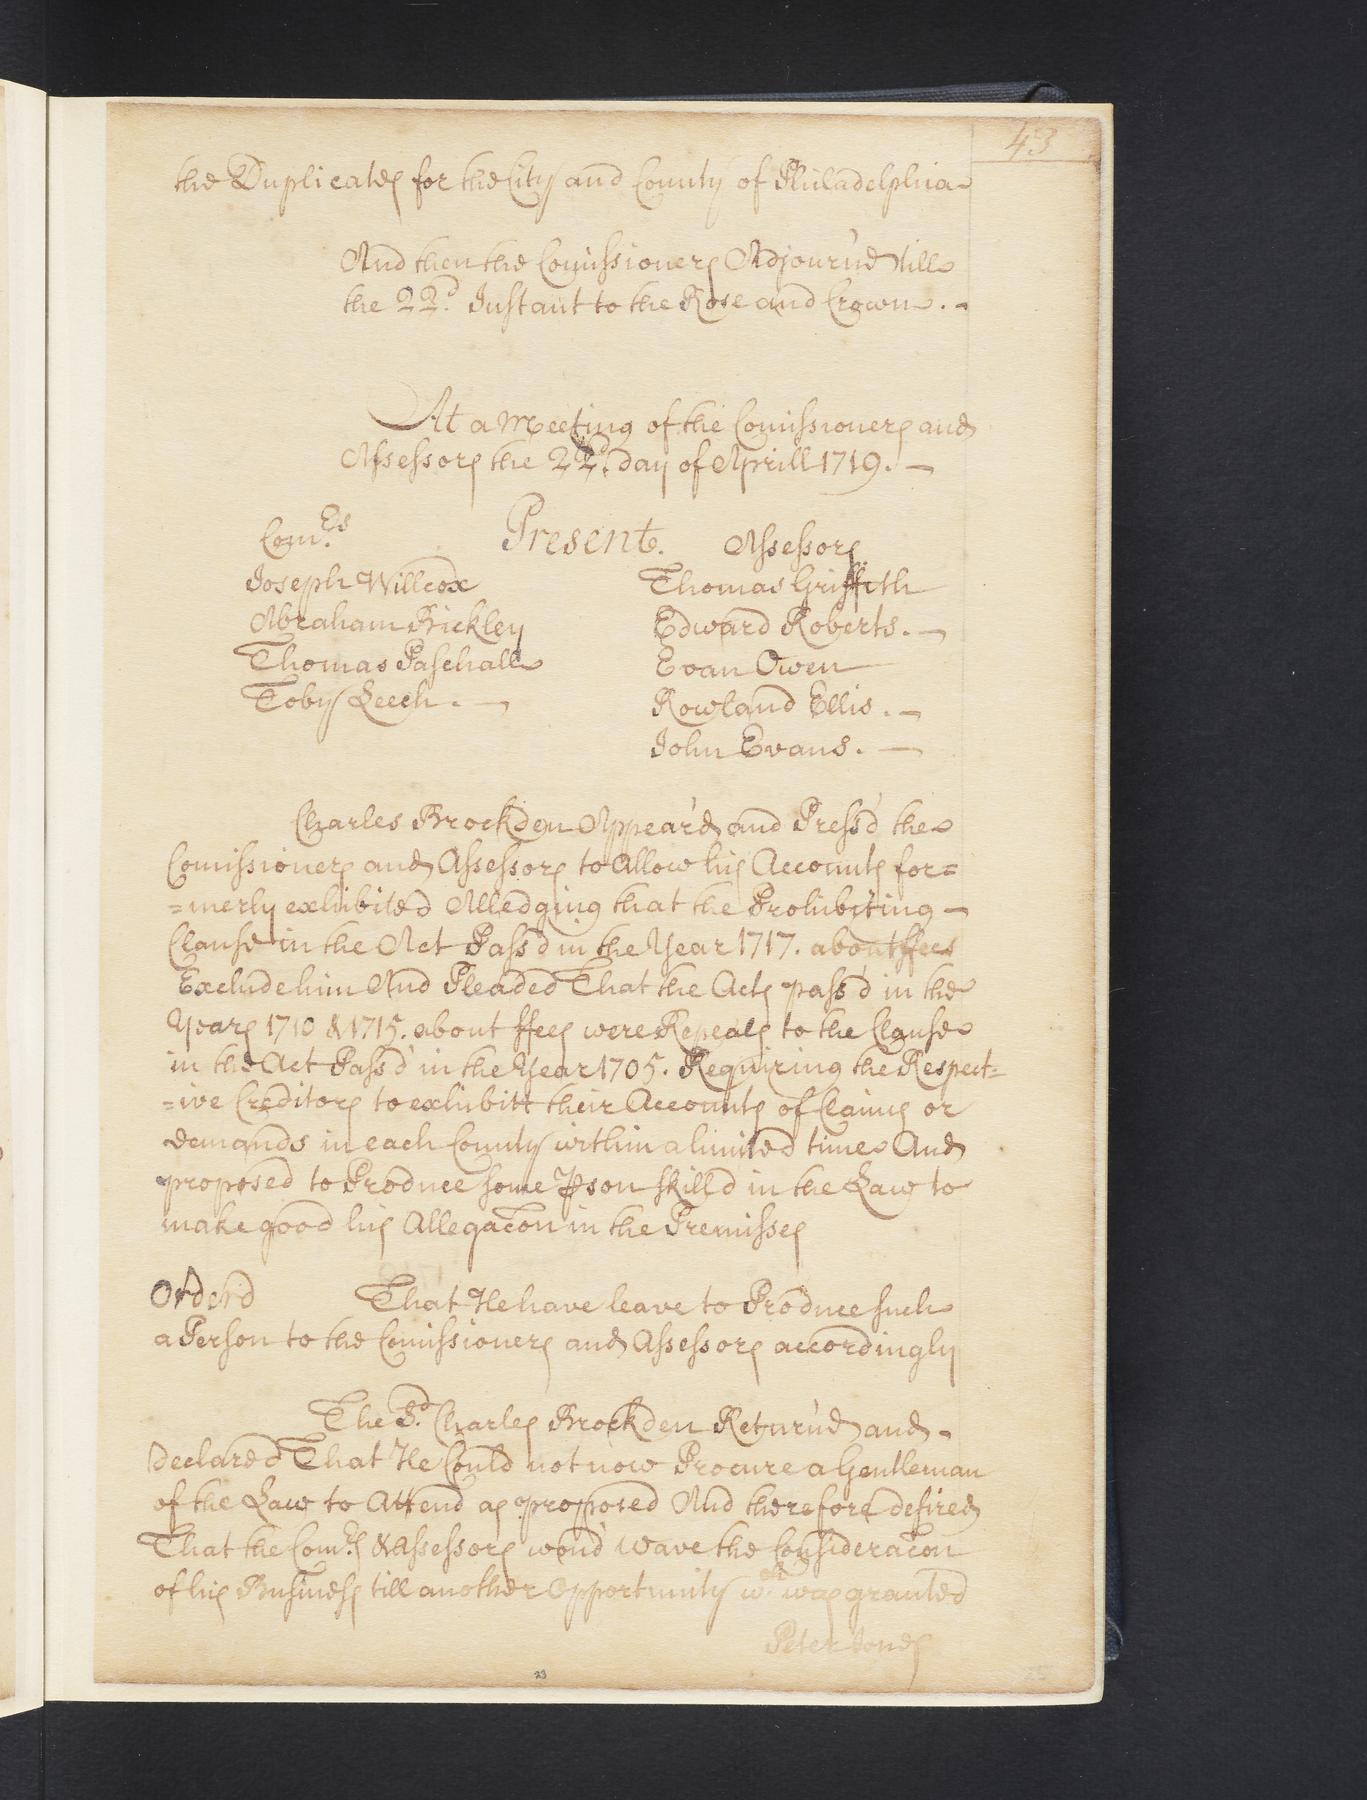 43
the Duplicates for the City and County of Philadelphia
And then the Comissioners Adjourn'd till
the 22d. Instant to the Rose and Crown. -
At a Meeting of the Comissioners and
Assessors the 22d. day of Aprill 1719. -
Com.rs Present. Assessors
Joseph Willcox Thomas Griffith
Abraham Bickley Edward Roberts. -
Thomas Paschall Evan Owen
Toby Leech. - Rowland Ellis. -
John Evans. -
Charles Brockden Appear'd and Press'd the
Comissioners and Assessors to Allow his Accounts for=
=merly exhibited Alledging that the Prohibiting -
Clause in the Act Pass'd in the Year 1717. about ffees
Exclude him And Pleaded That the Acts pass'd in the
Years 1710 & 1715. about ffees were Repeals to the Clause
in the Act Pass'd in the Year 1705. Requiring the Respect=
=ive Creditors to exhibitt their Accounts of Claims or
demands in each County within a limited time And
proposed to Produce some Pson skill'd in the Law to
make good his Allegacon in the Premisses
Order'd That He have leave to Produce such
a Person to the Comissioners and Assessors accordingly
The Sd. Charles Brockden Return'd and -
Declared That He Could not now Procure a Gentleman
of the Law to Attend as proposed And therefore desired
That the Com.rs & Assessors wou'd wave the Consideracon
of his Business till another Opportunity wch. was granted
Peter Jones
23